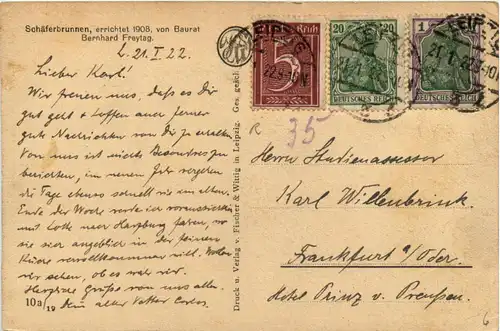 Schäferbrunnen, errichtet 1908, von Baurat
Bernhard Freytag.
L. 21. I. 22.
Lieber Karl!
Wir freuen uns, daß es Dir
gut geht & hoffen auch ferner
gute Nachrichten von Dir zu erhalten.
Von uns ist nichts Besonderes zu
berichten, im neuen Jahr vergehen
die Tage ebenso schnell wie im alten.
Ende der Woche werde ich voraussichtl.
mit Lotte nach Harzburg fahren, wo
sie sich angeblich in der feinen
Küche vervollkommnen will. Wollen
wir sehen, ob es wahr wird.
Herzliche Grüße von uns allen.
Dein alter Vetter
10a/19
Druck u. Verlag v. Fischer & Wittig in Leipzig. Ges. gesch.
LEIPZIG
5
20 20
DEUTSCHES REICH
1
DEUTSCHES REICH
35
Herrn Studienassessor
Karl Willenbrink
Frankfurt a/Oder.
Hotel Prinz v. Preußen.
6